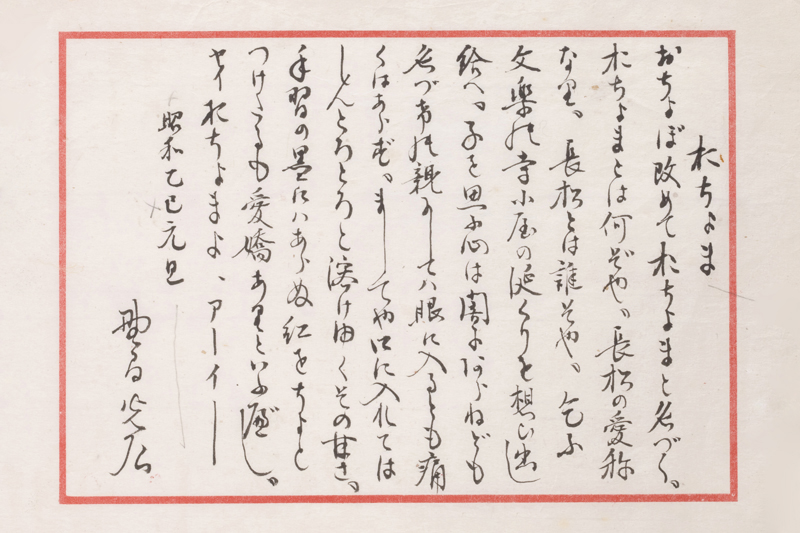 おちよま
おちよぼ改めておちよまと名づく。
おちよまとは何ぞや、長松の愛称
なり、長松とは誰そや、乞ふ
文楽の寺小屋の涎くりを想ひ出し
給へ、子を思ふ心は闇にあらねども
名づけの親にしてハ眼に入るとも痛
くはあらず、ましてや口に入れては
しんとろとろと溶けゆくその甘さ、
手習の墨にハあらぬ紅をちよと
つけたるも愛嬌ありといふ可し。
サイおちよまよ、アーイー
昭和乙巳元旦